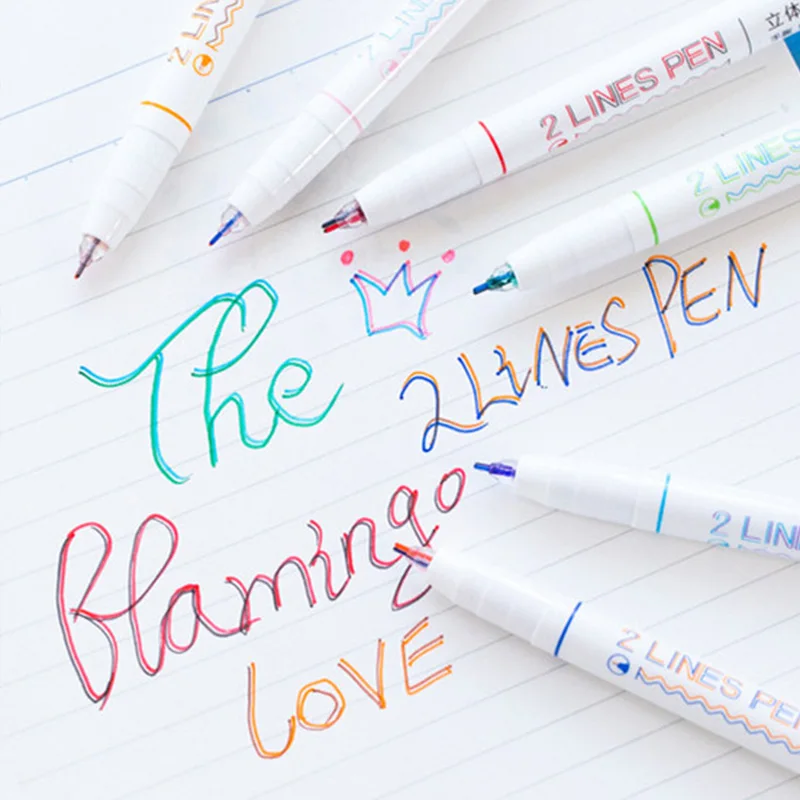 2 LIN
2 LINE
2 LINES PEN
立体
2 LINES
The
2 LiNES PEN
Blamingo
LOVE
2 LIN
2 LINES PEN